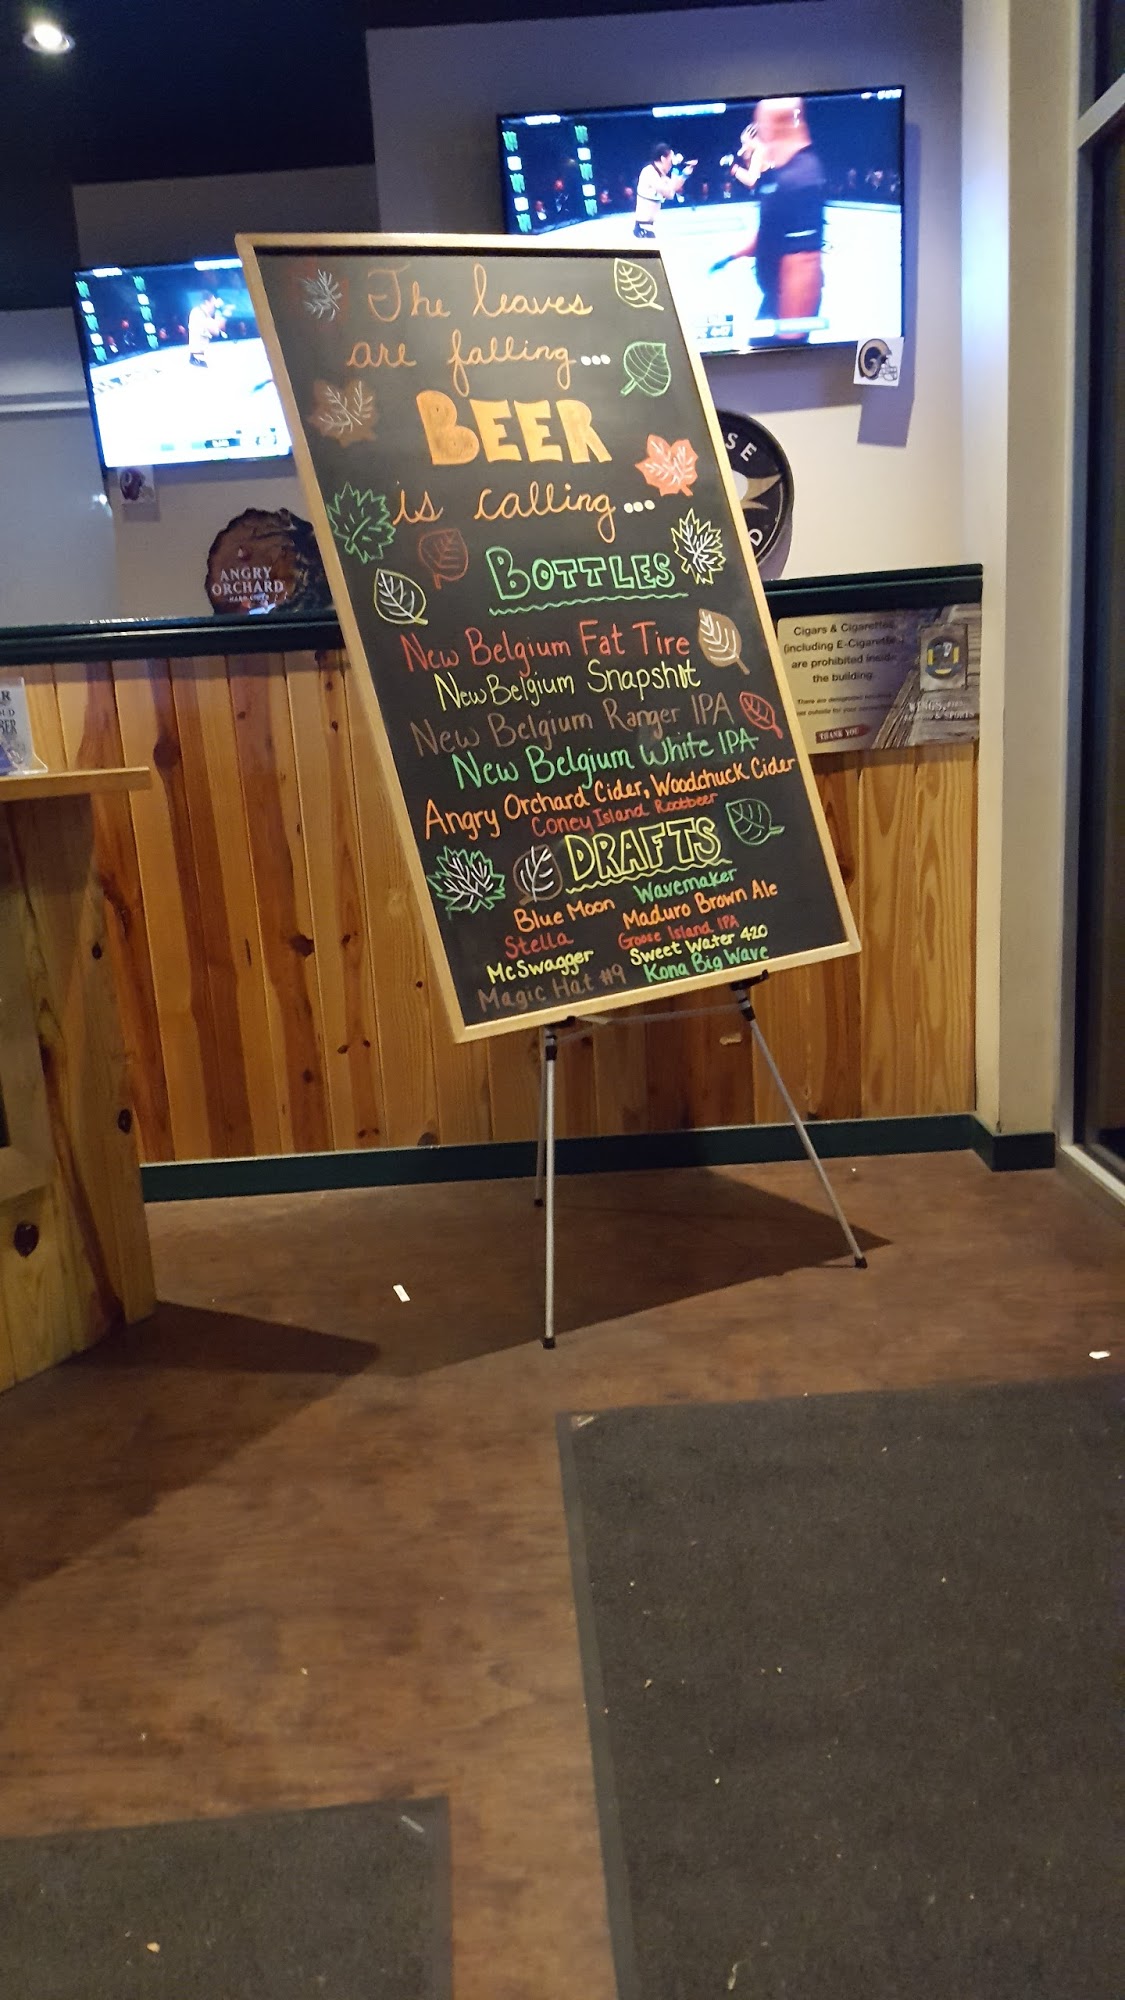 The leaves
are falling...
BEER
is calling...
BOTTLES
New Belgium Fat Tire
New Belgium Snapshot
New Belgium Ranger IPA
New Belgium White IPA
Angry Orchard Cider, Woodchuck Cider
Coney Island Rootbeer
DRAFTS
Blue Moon
Stella
McSwagger
Magic Hat #9
Wavemaker
Maduro Brown Ale
Goose Island IPA
Sweet Water 420
Kona Big Wave
ANGRY
ORCHARD
HARD CIDER
SE
D
Cigars & Cigarettes
(including E-Cigarettes)
are prohibited inside
the building.
THANK YOU
WINGS,
& SPORTS